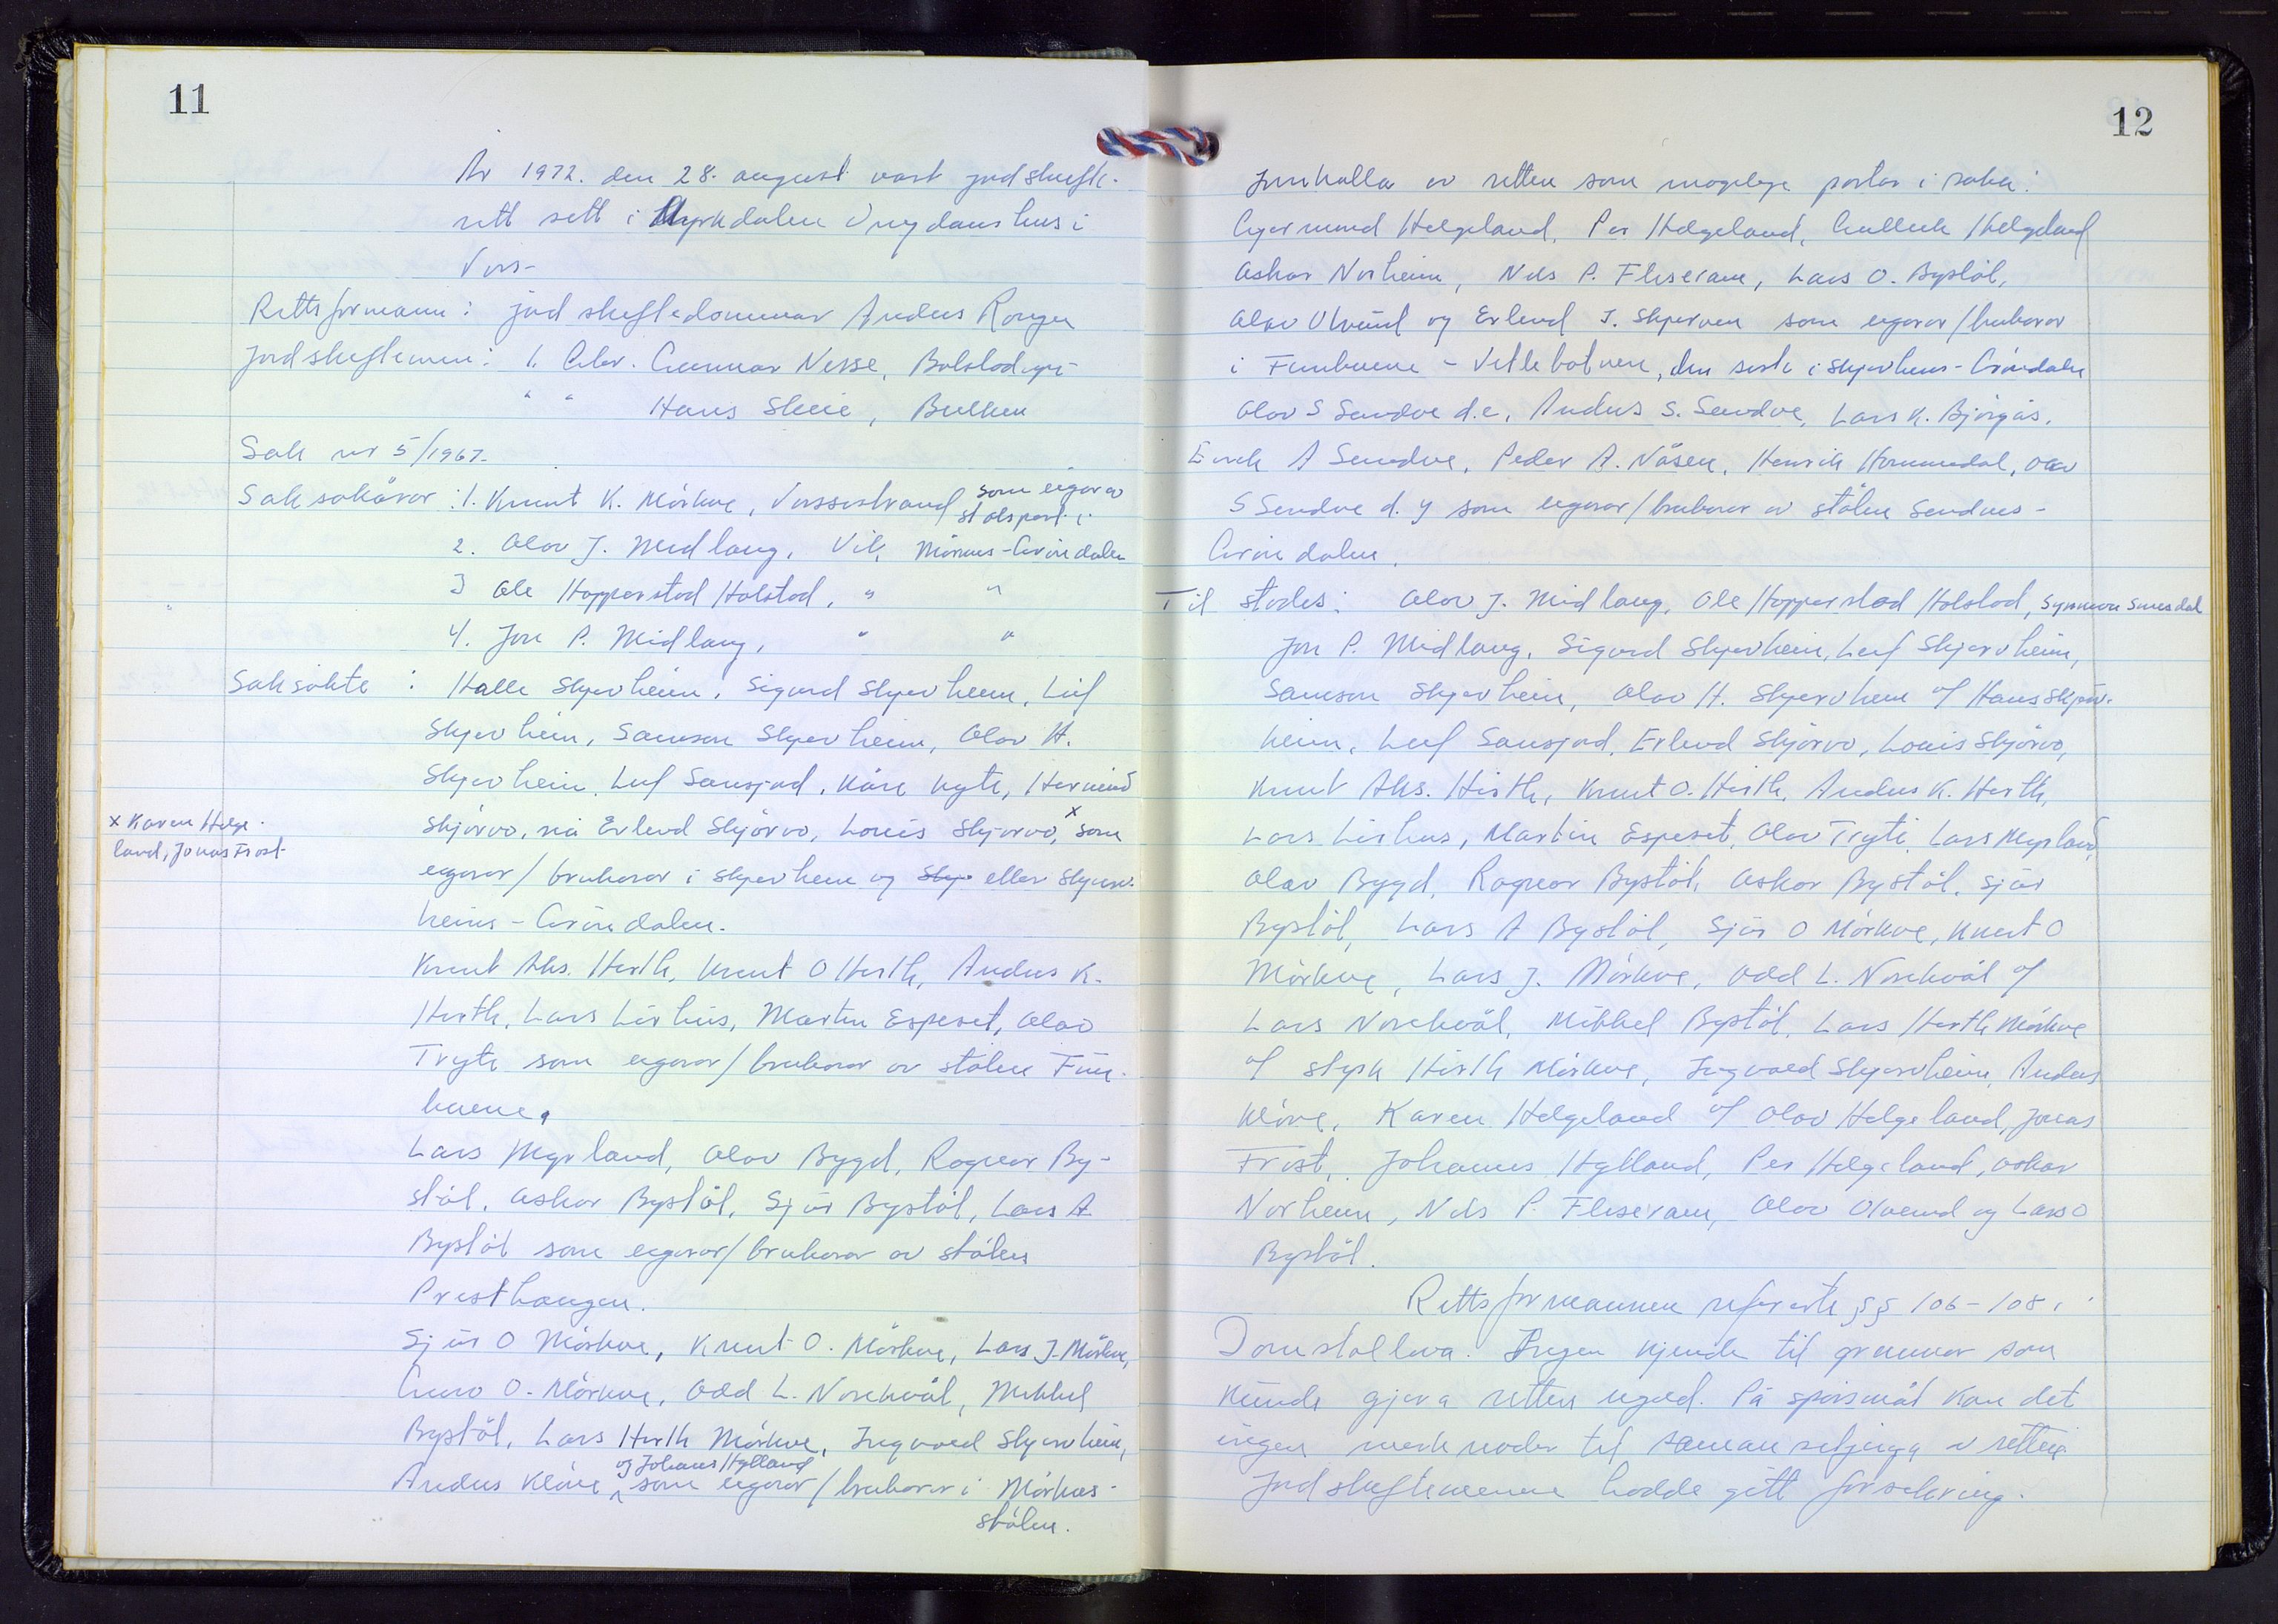 11
År 1972. den 28. august vart jordskifte-
rett sett i Myrkdalen Ungdomshus i
Voss-
Rettsformann: jordskiftedommar Anders Ronge
Jordskiftemenn: 1. Gbr. Gunnar Nesse, Bolstadøyri
" " Hans Skeie, Bulken
Sak nr 5/1967.
Saksøkarar: 1. Knut K. Mörkve, Vossestrand som eigar av
stølspart i
2. Olav J. Midlang, Vik, Mörkves-Gröndalen
3 Ole Hopperstad Halstad, " "
4. Jon P. Midlang, " "
Saksökte : Halle Skjervheim, Sigurd Skjervheim, Leif
Skjervheim, Samson Skjervheim, Olav H.
Skjervheim, Leif Sausjord, Kåre Kyte, Hermund
x Karen Helge-
land, Jonas Frost
Skjörvo, nå Erlend Skjörvo, Louis Skjørvo, x som
eigarar/brukarar i Skjervheim og Skje eller Skjerv-
heims-Gröndalen.
Knut Aks. Hirth, Knut O Hirth, Anders K.
Hirth, Lars Lirhus, Martin Espeset, Olav
Tryti som eigarar/brukarar av stölen Fin-
buene.
Lars Myrland, Olav Bygd, Ragnar By-
stöl, Oskar Bystöl, Sjur Bystöl, Lars A
Bystöl som eigarar/brukarar av stölen
Presthaugen.
Sjur O Mörkve, Knut O. Mörkve, Lars J. Mörkve,
Guro O. Mörkve, Odd L. Norekvål, Mikkel
Bystöl, Lars Hirth Mörkve, Ingvald Skjervheim,
og Johanes Hylland
Anders Klöve som eigarar/brukarar i Mörkves-
stölen.
12
Innkalla av retten som moglege partar i saka:
Gjermund Helgeland, Per Helgeland, Gulleik Helgeland
Oskar Norheim, Nils P. Fliseram, Lars O. Bystöl,
Olav Ølvund og Erlend J. Skjerven som eigarar/brukarar
i Finbuene - Vetlebotnen, den siste i Skjerheims-Gröndalen
Olav S Sendve d.e, Anders S. Sendve, Lars K. Björgås,
Eirik A Sendve, Peder A. Nåsen, Henrik Hommedal, Olav
S Sendve d. y som eigarar/brukarar av stölen Sendves-
Gröndalen.
Til stades: Olav J. Midlang, Ole Hopperstad Halstad, Synneva Smesdal
Jon P. Midlang, Sigurd Skjervheim, Leif Skjervheim,
Samson Skjervheim, Olav H. Skjervheim v/ Hans Skjerv-
heim, Leif Sausjord, Erlend Skjörvo, Louis Skjörvo,
Knut Aks. Hirth, Knut O. Hirth, Anders K. Hirth,
Lars Lirhus, Martin Espeset, Olav Tryti, Lars Myrland,
Olav Bygd, Ragnar Bystöl, Oskar Bystöl, Sjur
Bystöl, Lars A Bystöl, Sjur O Mörkve, Knut O
Mörkve, Lars J. Mörkve, Odd L. Norekvål v/
Lars Norekvål, Mikkel Bystöl, Lars Hirth Mörkve
v/ Styrk Hirth Mörkve, Ingvald Skjervheim, Anders
Klöve, Karen Helgeland v/ Olav Helgeland, Jonas
Frost, Johannes Hylland, Per Helgeland, Oskar
Norheim, Nils P. Fliseram, Olav Ølvund og Lars O
Bystöl.
Rettsformannen refererte §§ 106-108 i
Domstollova. Ingen kjende til grunnar som
kunde gjera retten ugild. På spörsmål kom det
ingen merknader til samansetjinga av retten.
Jordskiftemennene hadde gitt forsikring.